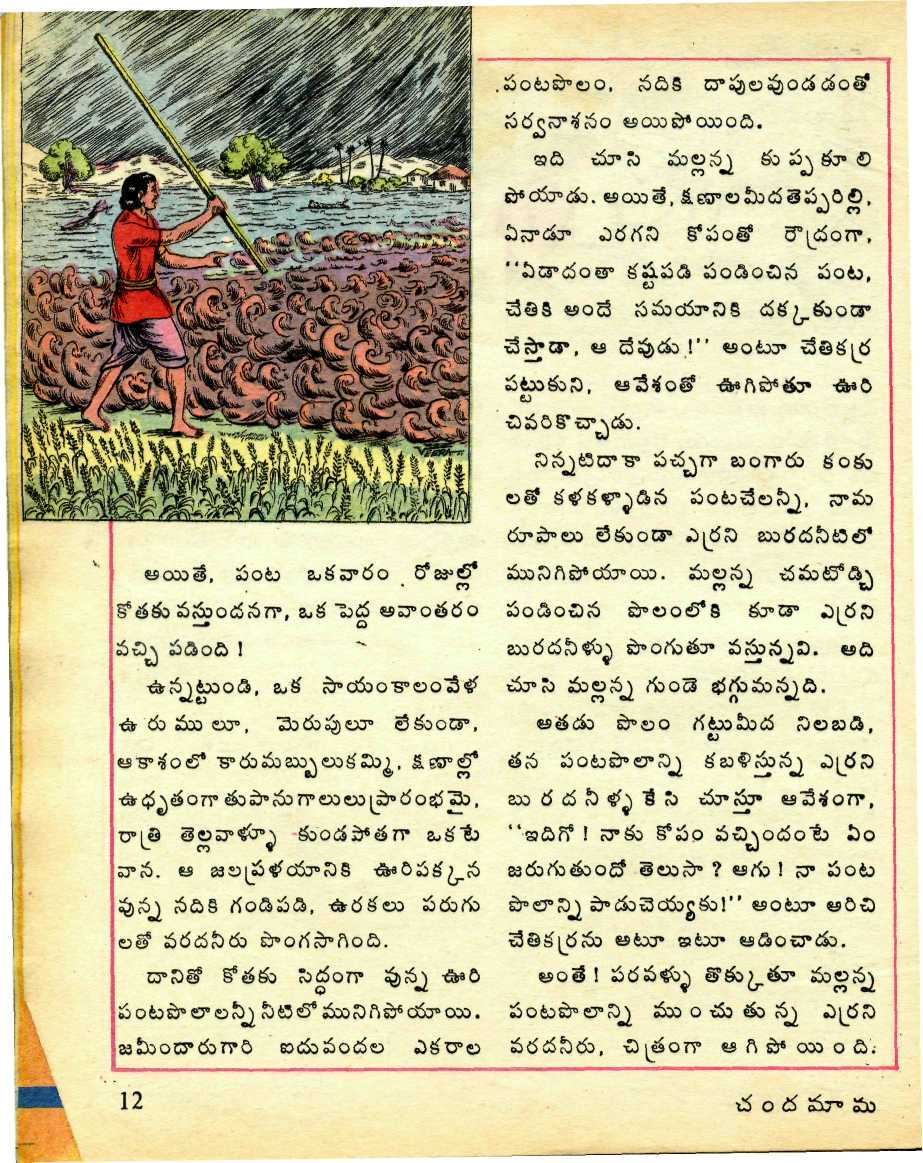 VEERA
అయితే, పంట ఒకవారం రోజుల్లో
కోతకు వస్తుందనగా, ఒక పెద్ద అవాంతరం
వచ్చి పడింది !
ఉన్నట్టుండి, ఒక సాయంకాలంవేళ
ఉరుములూ, మెరుపులూ లేకుండా,
ఆకాశంలో కారుమబ్బులుకమ్మి, క్షణాల్లో
ఉధృతంగా తుపానుగాలులు ప్రారంభమై,
రాత్రి తెల్లవాళ్ళూ కుండపోతగా ఒకటే
వాన. ఆ జలప్రళయానికి ఊరిపక్కన
వున్న నదికి గండిపడి, ఉరకలు పరుగు
లతో వరదనీరు పొంగసాగింది.
దానితో కోతకు సిద్ధంగా వున్న ఊరి
పంటపొలాలన్నీ నీటిలో మునిగిపోయాయి.
జమీందారుగారి ఐదువందల ఎకరాల
పంటపొలం, నదికి దాపులవుండడంతో
సర్వనాశనం అయిపోయింది.
ఇది చూసి మల్లన్న కుప్పకూలి
పోయాడు. అయితే, క్షణాలమీద తెప్పరిల్లి,
ఏనాడూ ఎరగని కోపంతో రౌద్రంగా,
‘‘ఏడాదంతా కష్టపడి పండించిన పంట,
చేతికి అందే సమయానికి దక్కకుండా
చేస్తాడా, ఆ దేవుడు !’’ అంటూ చేతికర్ర
పట్టుకుని, ఆవేశంతో ఊగిపోతూ ఊరి
చివరికొచ్చాడు.
నిన్నటిదాకా పచ్చగా బంగారు కంకు
లతో కళకళ్ళాడిన పంటచేలన్నీ, నామ
రూపాలు లేకుండా ఎర్రని బురదనీటిలో
మునిగిపోయాయి. మల్లన్న చమటోడ్చి
పండించిన పొలంలోకి కూడా ఎర్రని
బురదనీళ్ళు పొంగుతూ వస్తున్నవి. అది
చూసి మల్లన్న గుండె భగ్గుమన్నది.
అతడు పొలం గట్టుమీద నిలబడి,
తన పంటపొలాన్ని కబళిస్తున్న ఎర్రని
బురదనీళ్ళకేసి చూస్తూ ఆవేశంగా,
‘‘ఇదిగో ! నాకు కోపం వచ్చిందంటే ఏం
జరుగుతుందో తెలుసా ? ఆగు ! నా పంట
పొలాన్ని పాడుచెయ్యకు!’’ అంటూ అరిచి
చేతికర్రను అటూ ఇటూ ఆడించాడు.
అంతే ! పరవళ్ళు తొక్కుతూ మల్లన్న
పంటపొలాన్ని ముంచుతున్న ఎర్రని
వరదనీరు, చిత్రంగా ఆగిపోయింది.
12
చందమామ